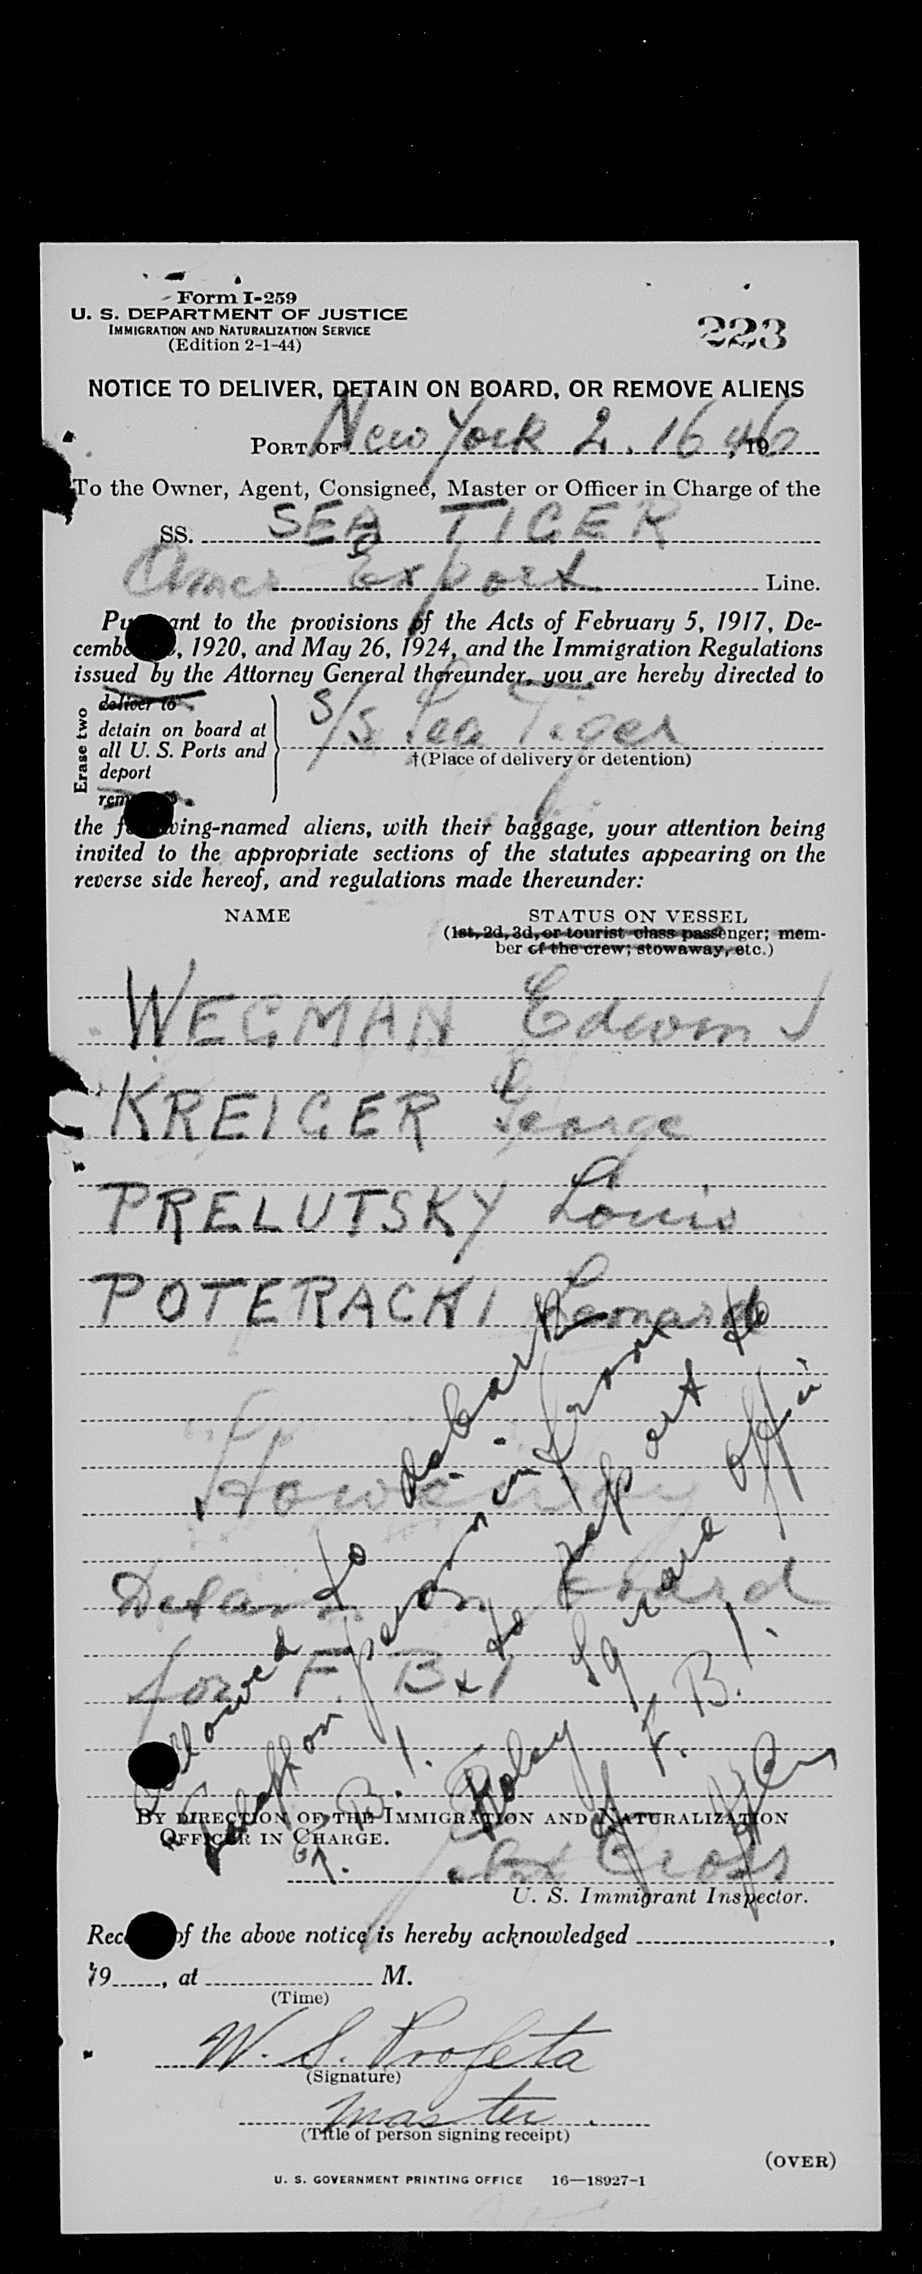 Form I-259
U. S. DEPARTMENT OF JUSTICE
IMMIGRATION AND NATURALIZATION SERVICE
(Edition 2-1-44)
223
NOTICE TO DELIVER, DETAIN ON BOARD, OR REMOVE ALIENS
PORT OF New York 2.16 46, 19
To the Owner, Agent, Consignee, Master or Officer in Charge of the
SS. SEA TIGER
Amer Export Line.
Pu ant to the provisions of the Acts of February 5, 1917, De-
cembe , 1920, and May 26, 1924, and the Immigration Regulations
issued by the Attorney General thereunder, you are hereby directed to
Erase two
deliver to
detain on board at
all U. S. Ports and
deport
S/S Sea Tiger
†(Place of delivery or detention)
the f wing-named aliens, with their baggage, your attention being
invited to the appropriate sections of the statutes appearing on the
reverse side hereof, and regulations made thereunder:
NAME STATUS ON VESSEL
(1st, 2d, 3d, or tourist class passenger; mem-
ber of the crew; stowaway, etc.)
WEGMAN Edwin J
KREIGER George
PRELUTSKY Louis
POTERACKI Leonard
Stowaway
Detain on board
for F. B. I
allowed to debark
Telephon permission from
F. B. I. to report to
Foley Square office
of F. B. I.
BY DIRECTION OF THE IMMIGRATION AND NATURALIZATION
OFFICER IN CHARGE.
Cross
U. S. Immigrant Inspector.
Rec of the above notice is hereby acknowledged ,
19 , at M.
(Time)
W. S. Profeta
(Signature)
Master
(Title of person signing receipt)
(OVER)
U. S. GOVERNMENT PRINTING OFFICE 16—18927-1